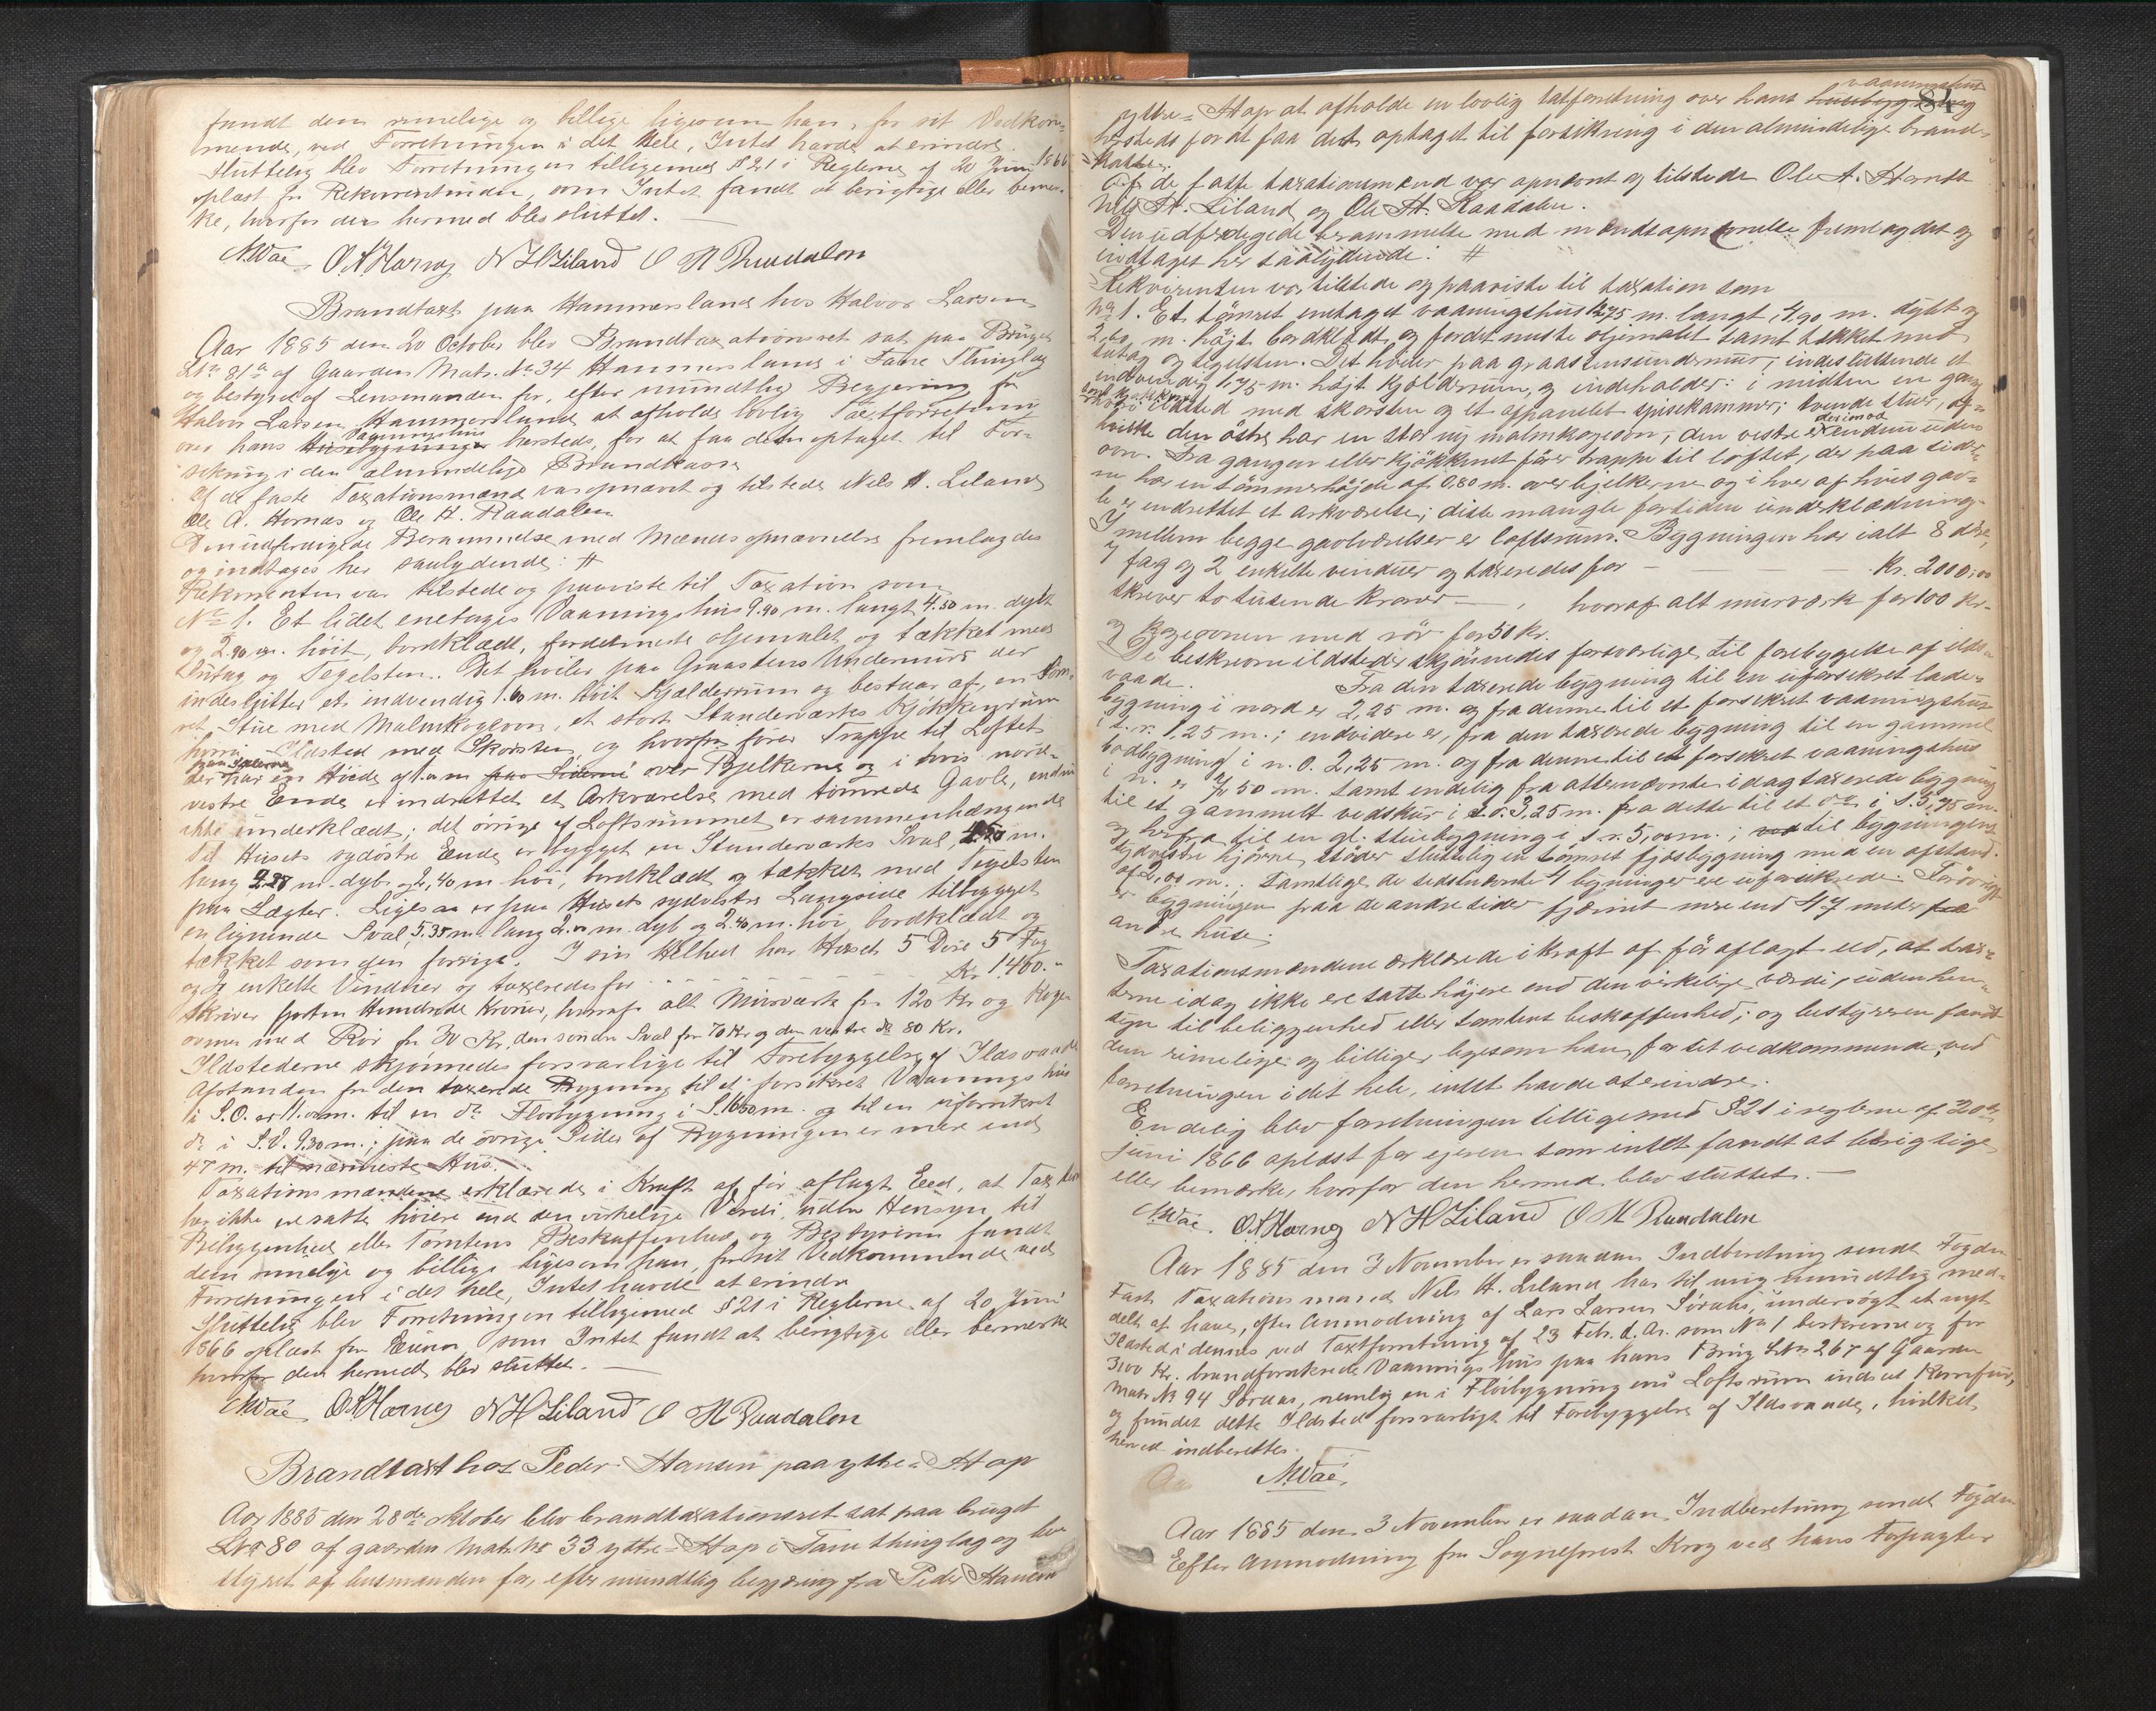 fundt dem rimelige og billige ligesom han, for sit Vedkom-
mende, ved Forretningen i det Hele, Intet havde at erindre.
Sluttelig blev Forretningen tilligemed § 21 i Reglerne af 20 Juni 1866
oplæst for Rekvirentinden, som Intet fandt at berigtige eller bemær-
ke, hvorfor den hermed blev sluttet. —
O A Hornæs N H Liland O H Raadalen
Brandtaxt paa Hammersland hos Halvor Larsen
Aar 1885 den 20 October blev Brandtaxationsret sat paa Bruget
LNo 81a af Gaarden Matr. No 34 Hammersland i Fane Thinglag
og bestyret af Lensmanden for, efter mundtlig Begjering fra
Halvor Larsen Hammersland at afholde lovlig Taxtforretning
over hans Husebygninger Vaaningshus hersteds, for at faa dette optaget til For-
sikring i den almindelige Brandkasse
Af de faste Taxationsmænd var opnævnt og tilstede Nels H. Liland
Ole A. Hornæs og Ole H. Raadalen
Den udferdigede Berammelse med Mænds opnævnelse fremlagdes
og indtages her saalydende: #
Rekvirenten var tilstede og paaviste til Taxation som
No 1. Et lidet enetages Vaaningshus 9.90 m. langt 4.50 m. dybt
og 2.90 m. høit, bordklædt, fordetmeste oljemalet og tækket med
Sutag og Tegelsten. Det hviler paa Graastens Undermur der
indeslutter et indvendig 1.60 m. høit Kjælderrum og bestaar af, en Tøm-
ret Stue med Malmkogeovn, et stort Standerværks Kjøkkenrum
hvori Ildsted med Skorsten og hvorfra fører Trappe til Loftet
der paa Siderne har en Høide af 1.0 m paa Siderne over Bjelkerne og i hvis nord-
vestre Ende er indrettet et Arkværelse med tømrede Gavle, endnu
ikke underklædt; det øvrige af Loftsrummet er sammenhængende
Til Husets sydøstre Ende er bygget en Standerværks Sval, m.
lang 2.28 m. dyb og 2,40 m høi, bordklædt og tækket med Tegelsten
paa Lægter. Ligesaa er paa Husets sydvestre Langside tilbygget
en lignende Sval, 5.35 m. lang 2.00 m. dyb og 2.40 m. høi, bordklædt og
tækket som den forrige. I sin Helhed har Huset 5 Døre 5 Fag
og 2 enkelte Vinduer og taxeredes for - - - - Kr 1.400.-
Skriver fjorten Hundrede Kroner, hvoraf alt Murværk for 120 Kr og Koge-
ovnen med Rør for 30 Kr. den søndre Sval for 70 Kr og den vestre do 80 Kr.
Ildstederne skjønnedes forsvarlige til Forebyggelse af Ildsvaade
Afstanden fra den taxerede Bygning til et forsikret Vaaningshus
i S.O. er 11.0 m. til en do Florbygning i S. 16.50 m. og til en uforsikret
do i S.V. 9.30 m.; paa de øvrige Sider af Bygningen er mere end
47 m. til nærmeste Hus.
Taxationsmændene erklærede i Kraft af før aflagt Eed, at Taxterne
her ikke ere satte høiere end den virkelige Værdi, uden Hensyn til
Beliggenhed eller Tomtens Beskaffenhed, og Bestyreren fandt
dem rimelige og billige ligesom han, for sit Vedkommende ved
Forretningen i det hele, Intet havde at erindre
Sluttelig blev Forretningen tilligemed § 21 i Reglerne af 20 Juni
1866 oplæst for Eieren som Intet fandt at berigtige eller bemærke
hvorfor den hermed blev sluttet. —
O A Hornæs N H Liland O H Raadalen
Brandtaxt hos Peder Hansen paa ytre-Hop
Aar 1885 den 28de oktober blev brandtaxationsret sat paa bruget
LNo 80 af gaarden Matr No 33 ytre-Hop i Fane thinglag og be-
styret af lensmanden for, efter mundtlig begjæring fra Peder Hansen
84
ytre-Hop at afholde en lovlig taxtforretning over hans husebygning vaaningshus
hersteds for at faa det optaget til forsikring i den almindelige brand-
kasse.
Af de faste taxationsmænd var opnævnt og tilstede Ole A. Hornæs
Nels H. Liland og Ole H. Raadalen.
Den udferdigede berammelse med mændsopnævnelse fremlagdes og
indtages her saalydende: #
Rekvirenten var tilstede og paaviste til taxation som
No 1. Et tømret enetages vaaningshus 12,75 m. langt, 4,90 m. dybt og
2,60 m. højt bordklædt og fordetmeste oljemalet samt tækket med
sutag og tegelsten. Det hviler paa graastensundermur, indesluttende et
indvendig 1,75 m. højt kjølderrum, og indeholder: i midten en gang
og kjøkken hvori ildsted med skorsten og et opanelet spisekammer; tvende stuer, af-
hvilke den østre har en stor ny malmkogeovn, den vestre er derimod endnu uden
ovn. Fra gangen eller kjøkkenet fører trappe til loftet, der paa sider-
ne har en tømmerhøjde af 0,80 m. over bjelkerne og i hver af hvis gav-
le er indrettet et arkværelse; disse mangle fortiden underklædning.
Imellem begge gavlværelser er loftsrum. Bygningen har ialt 8 døre,
7 fag og 2 enkelte vinduer og taxeredes for — — — Kr. 2000,00
skriver to tusende kroner — , hvoraf alt murværk for 100 kr.
og kogeovnen med rør for 50 kr.
De beskrevne ildsteder skjønnedes forsvarlige til forebyggelse af ilds-
vaade. Fra den taxerede bygning til en uforsikret lade-
bygning i nord er 2,25 m. og fra denne til et forsikret vaaningshus
i n. v. 1.25 m.; endvidere er, fra den taxerede bygning til en gammel
bodbygning i n. o. 2,25 m. og fra denne til et forsikret vaaningshus
i n. er 7,50 m. samt endelig fra oftenævnte i dag taxerede bygning
til et gammelt vedskur i s.o. 3,25 m. fra dette til et do i s. 3,75 m.
og herfra til en gl. stuebygning i s.v. 5,00 m.; ved til bygningens
sydvestre hjørne støder sluttelig en tømret fjøsbygning med en afstand
af 2,00 m. Samtlige de sidstnævnte 4 bygninger ere uforsikrede. Forøvrigt
er bygningen paa de andre sider fjærnet mere end 47 meter fra
andre huse.
Taxationsmændene erklærede i kraft af før aflagt ed, at tax-
terne idag ikke ere satte højere end den virkelige værdi, uden hen-
syn til beliggenhed eller tomtens beskaffenhed; og bestyreren fandt
dem rimelige og billige, ligesom han, for sit vedkommende, ved
forretningen i det hele, intet havde at erindre.
Endelig blev forretningen tilligemed § 21 i reglerne af 20de
juni 1866 oplæst for ejeren som intet fandt at berigtige
eller bemærke, hvorfor den hermed blev sluttet. —
O A Hornæs N H Liland O H Raadalen
Aar 1885 den 3 November er saadan Indberetning sendt Fogden
Fast Taxationsmand Nils H. Liland har til mig mundtlig med-
delt at have, efter Anmodning af Lars Larsen Søraas, undersøgt et nyt
Ildsted i dennes ved Taxtforretning af 23 Feb. d. Ar. som No 1 beskrevne og for
3100 Kr. brandforsikrede Vaaningshus paa hans Brug LNo 267 af Gaarden
Matr No 94 Søraas, nemlig en i Fløibygning ens Loftsrum indsat Kamfur,
og fundet dette Ildsted forsvarligt til Forebyggelse af Ildsvaade, hvilket
herved indberettes.
Aar 1885 den 3 November er saadan Indberetning sendt Fogden
Eefter Anmodning fra Sogneprest Krog ved hans Forpagter